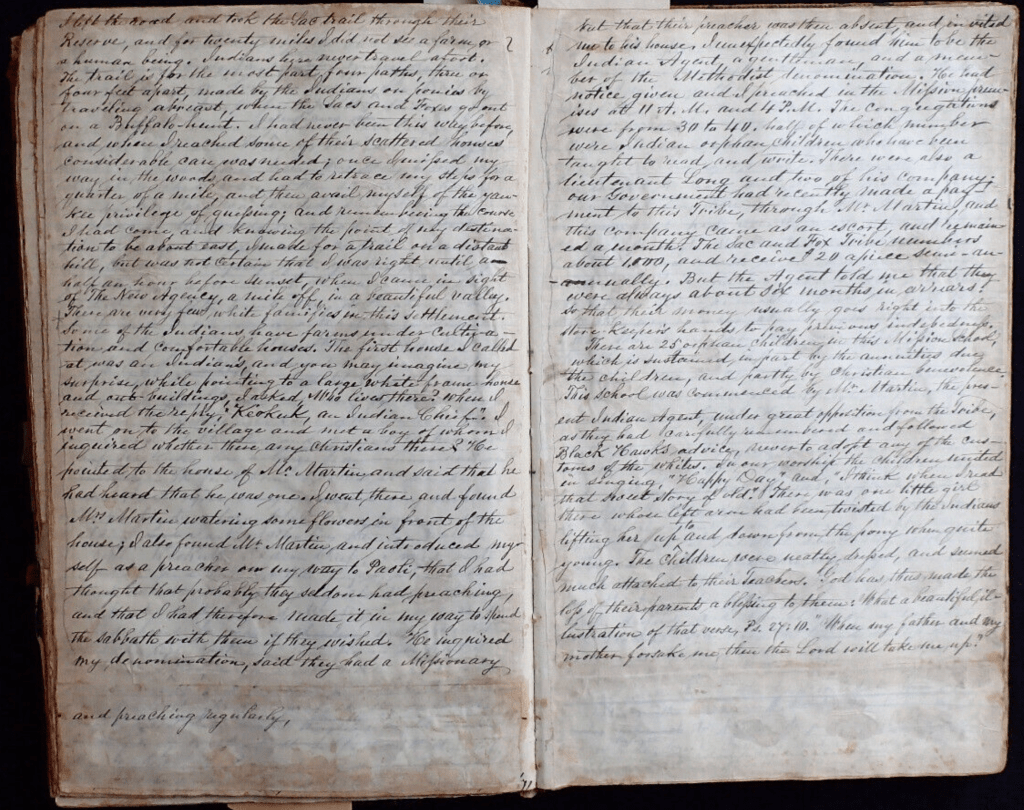 I left the road and took the Sac trail through their
Reserve, and for twenty miles I did not see a farm, or
a human being. Indians here never travel afoot.
The trail is for the most part, four paths, three or
four feet apart, made by the Indians on ponies by
traveling abreast, when the Sacs and Foxes go out
on a Buffalo-hunt. I had never been this way before,
and when I reached some of their scattered houses
considerable care was needed; once I missed my
way, in the woods, and had to retrace my steps for a
quarter of a mile, and then avail myself of the yan-
kee privilege of guessing; and remembering the course
I had come, and knowing the point of my destina-
tion to be about east, I made for a trail on a distant
hill, but was not certain that I was right until a
half an hour before sunset, when I came in sight
of The New Agency, a mile off, in a beautiful valley.
There are very few white families in this settlement.
Some of the Indians, have farms under cultiva-
tion and comfortable houses. The first house I called
at was an Indians, and you may imagine my
surprise, while pointing to a large white frame house
and out-buildings, I asked, Who lives there? when I
received the reply, "Keokuk, an Indian Chief." I
went on to the village and met a boy of whom I
inquired whether there any Christians there? He
pointed to the house of Mr. Martin, and said that he
had heard that he was one. I went there and found
Mrs Martin watering some flowers in front of the
house; I also found Mr. Martin, and introduced my-
self as a preacher on my way to Paoli, that I had
thought that probably they seldom had preaching,
and that I had therefore made it in my way to spend
the sabbath with them if they wished. He inquired
my denomination, said they had a Missionary
and preaching regularly,
but that their preacher was then absent, and invited
me to his house. I unexpectedly found him to be the
Indian Agent, a gentleman, and a mem-
ber of the Methodist denomination. He had
notice given and I preached in the Mission prem-
ises at 11 A.M. and 4 P.M. The congregations
were from 30 to 40. half of which number
were Indian orphan children who have been
taught to read, and write. There were also a
Lieutenant Long and two of his company;
our Government had recently made a pay-
ment to this Tribe, through Mr. Martin, and
this company came as an escort, and remain-
ed a month. The Sac and Fox Tribe numbers
about 1,000, and receive $20 apiece semi-an-
nually. But the Agent told me that they
were always about six months in arrears:
so that their money usually goes right into the
store Keepers hands to pay previous indebtedness.
There are 25 orphan children, in this Mission school,
which is sustained in part by the annuities due
the children, and partly by Christian benevolence.
This school was commenced by Mr. Martin, the pres-
ent Indian Agent, under great opposition from the Tribe,
as they had carefully remembered and followed
Black Hawk's advice, never to adopt any of the cus-
toms of the whites. In our worship the children united
in singing, "Happy Day," and, "I think when I read
that sweet story of old." There was one little girl
there whose left arm had been twisted by the Indians
lifting her up and down from the pony when quite
young. The Children were neatly dressed, and seemed
much attached to their Teachers. God has thus made the
loss of their parents a blessing to them: What a beautiful il-
lustration of that verse, Ps. 27:10. "When my father and my
mother forsake me, then the Lord will take me up."
71